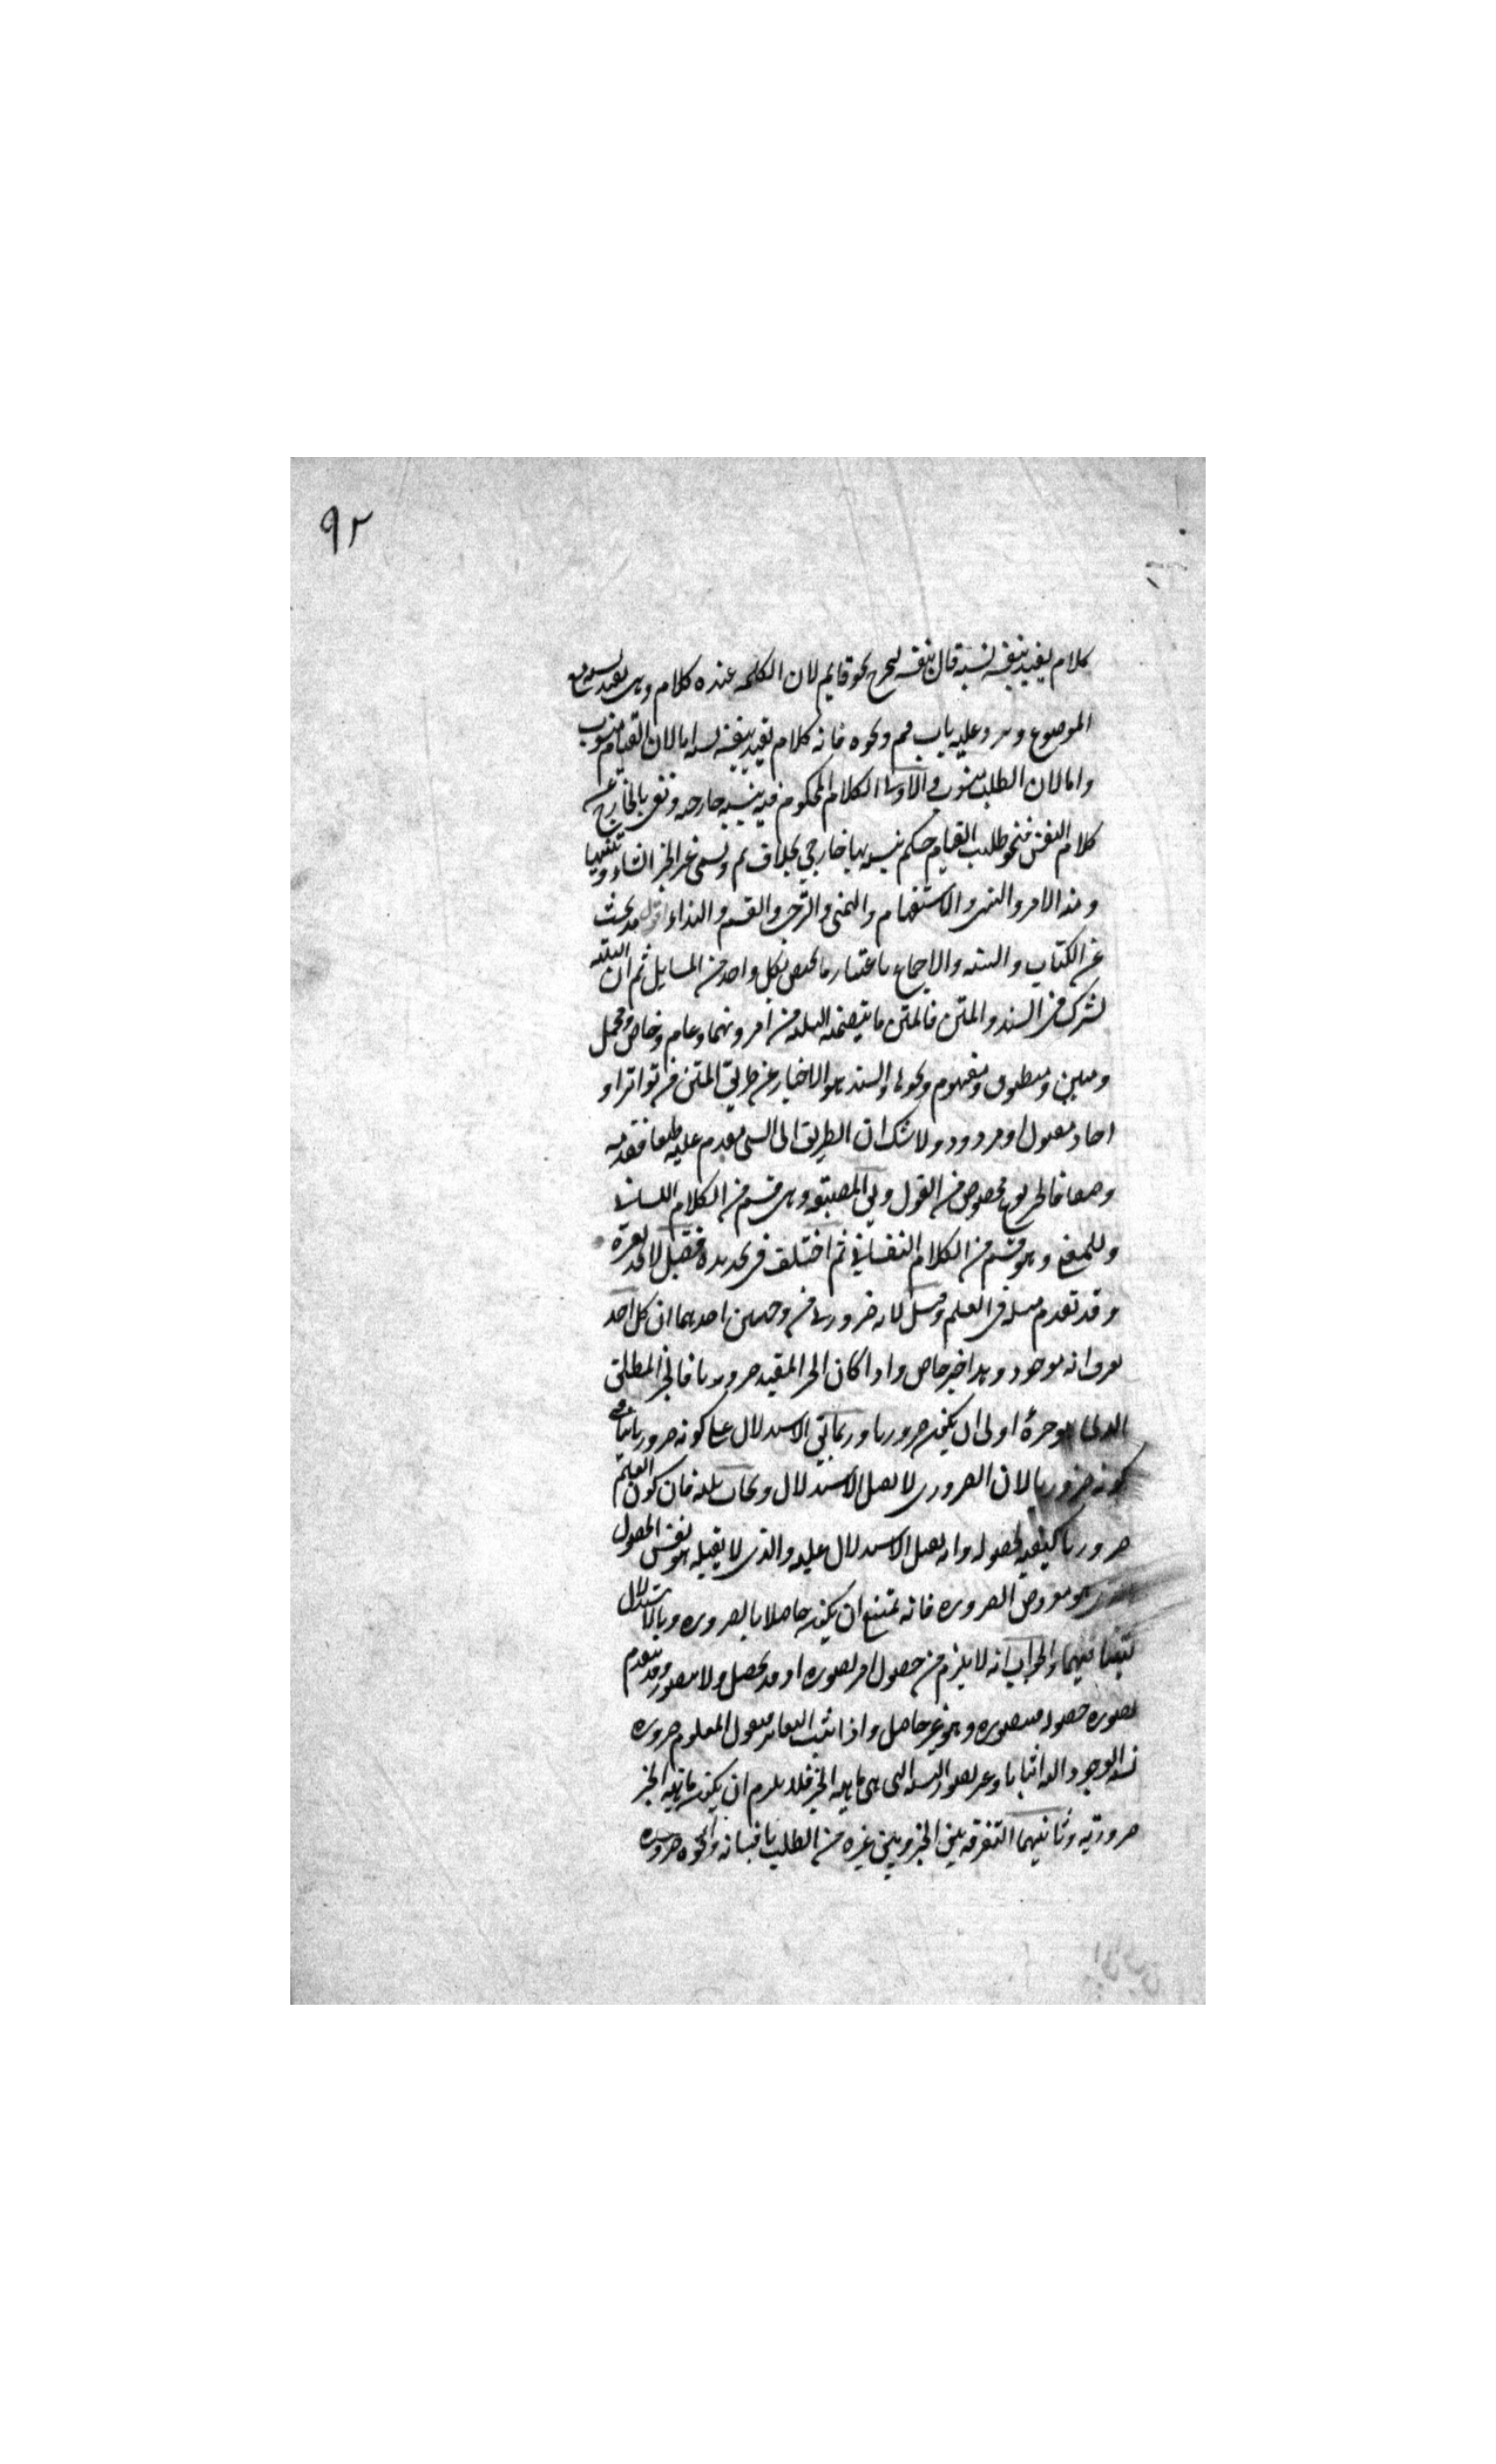 ٩٢
كلام يفيد بنفسه نسبة قال بنفسه ليخرج نحو قايم لان الكلمة عنده كلام وهى يفيد نسبة مع
الموضوع ويرد عليه باب قم ونحوه فانه كلام يفيد بنفسه نسبة اما لان القيام منسوب
واما لان الطلب منسوب والاولى الكلام المحكوم فيه بنسبة خارجه ونعنى بالخارج عن
كلام النفس فنحو طلبت القيام حكم بنسبة لها خارجي بخلاف قم ويسمى غير الخبر انشاء وتنبيها
ومنه الامر والنهى والاستفهام والتمنى والترجى والقسم والنداء اقول قد بحث
عن الكتاب والسنة والاجماع باعتبار ما يختص بكل واحد من المسايل ثم ان الثلثة
تشترك فى السند والمتن فالمتن ما يتضمنه الثلثة من امر ونهى وعام وخاص ومجمل
ومبين ومنطوق ومفهوم ونحوها والسند هو الاخبار عن طريق المتن من تواتر او
احاد مقبول او مردود ولا شك ان الطريق الى الشى مقدم عليه طبعا فقدمه
وضعا فالخبر نوع مخصوص من القول وهى قسم من الكلام اللسانى
وللمعنى وهو قسم من الكلام النفسانى ثم اختلف فى تحديده فقيل لا يحد لعسره
وقد تقدم مثله فى العلم وقيل لانه ضرورى من وجهين احدهما ان كل احد
يعرف انه موجود وهذا خبر خاص واذا كان الخبر المقيد ضروريا فالخبر المطلق
الذى هو جزؤه اولى ان يكون ضروريا وربما يأتى الاستدلال على كونه ضروريا ينافى
كونه ضروريا لان الضرورى لا يقبل الاستدلال ويجاب بانه فان كون العلم
ضروريا كيفية لحصوله وانه يقبل الاستدلال عليه والذى لا يقبله هو نفس الحصول
هو معروض الضرورة فانه يمتنع ان يكون حاصلا بالضرورة وبالاستدلال
لتنافيهما والجواب انه لا يلزم من حصول امر تصوره او قد يحصل ولا يتصور وقد يتقدم
تصوره حصوله فيتصوره وهو غير حاصل واذا ثبت التغاير فنقول المعلوم ضرورة
نسبة الوجود اليه اثباتا وغير تصور النسبة التى هى ماهية الخبر فلا يلزم ان يكون ماهية الخبر
ضرورية وثانيهما التفرقة بين الخبر وبين غيره من الطلب باقسامه ونحوه ضرورة